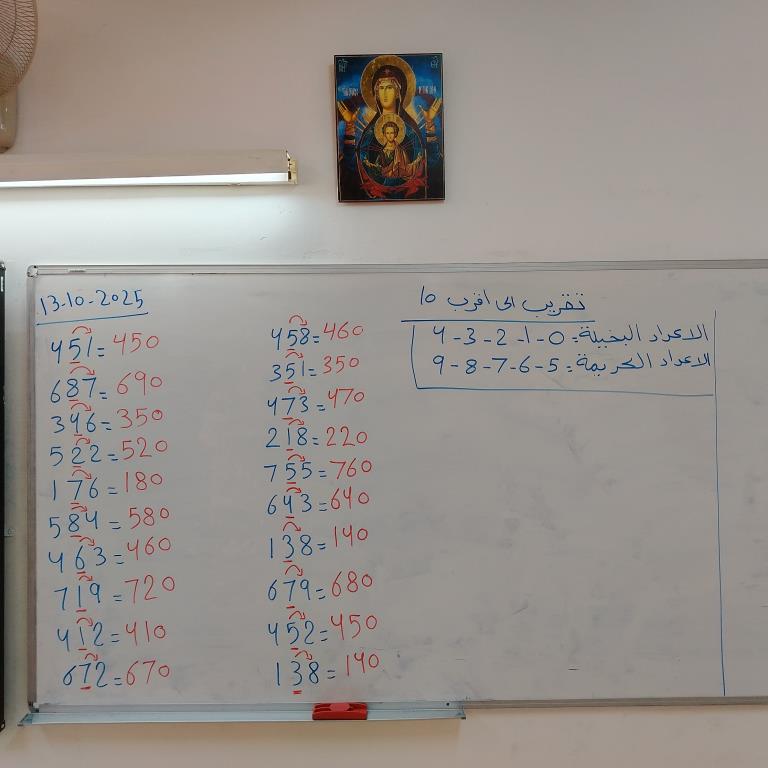 13-10-2025
451=450
687=690
346=350
522=520
176=180
584=580
463=460
719=720
412=410
672=670
458=460
351=350
473=470
218=220
755=760
643=640
138=140
679=680
452=450
138=140
تقريب الى اقرب 10
الاعداد البخيلة: 0-1-2-3-4
الاعداد الكريمة: 5-6-7-8-9